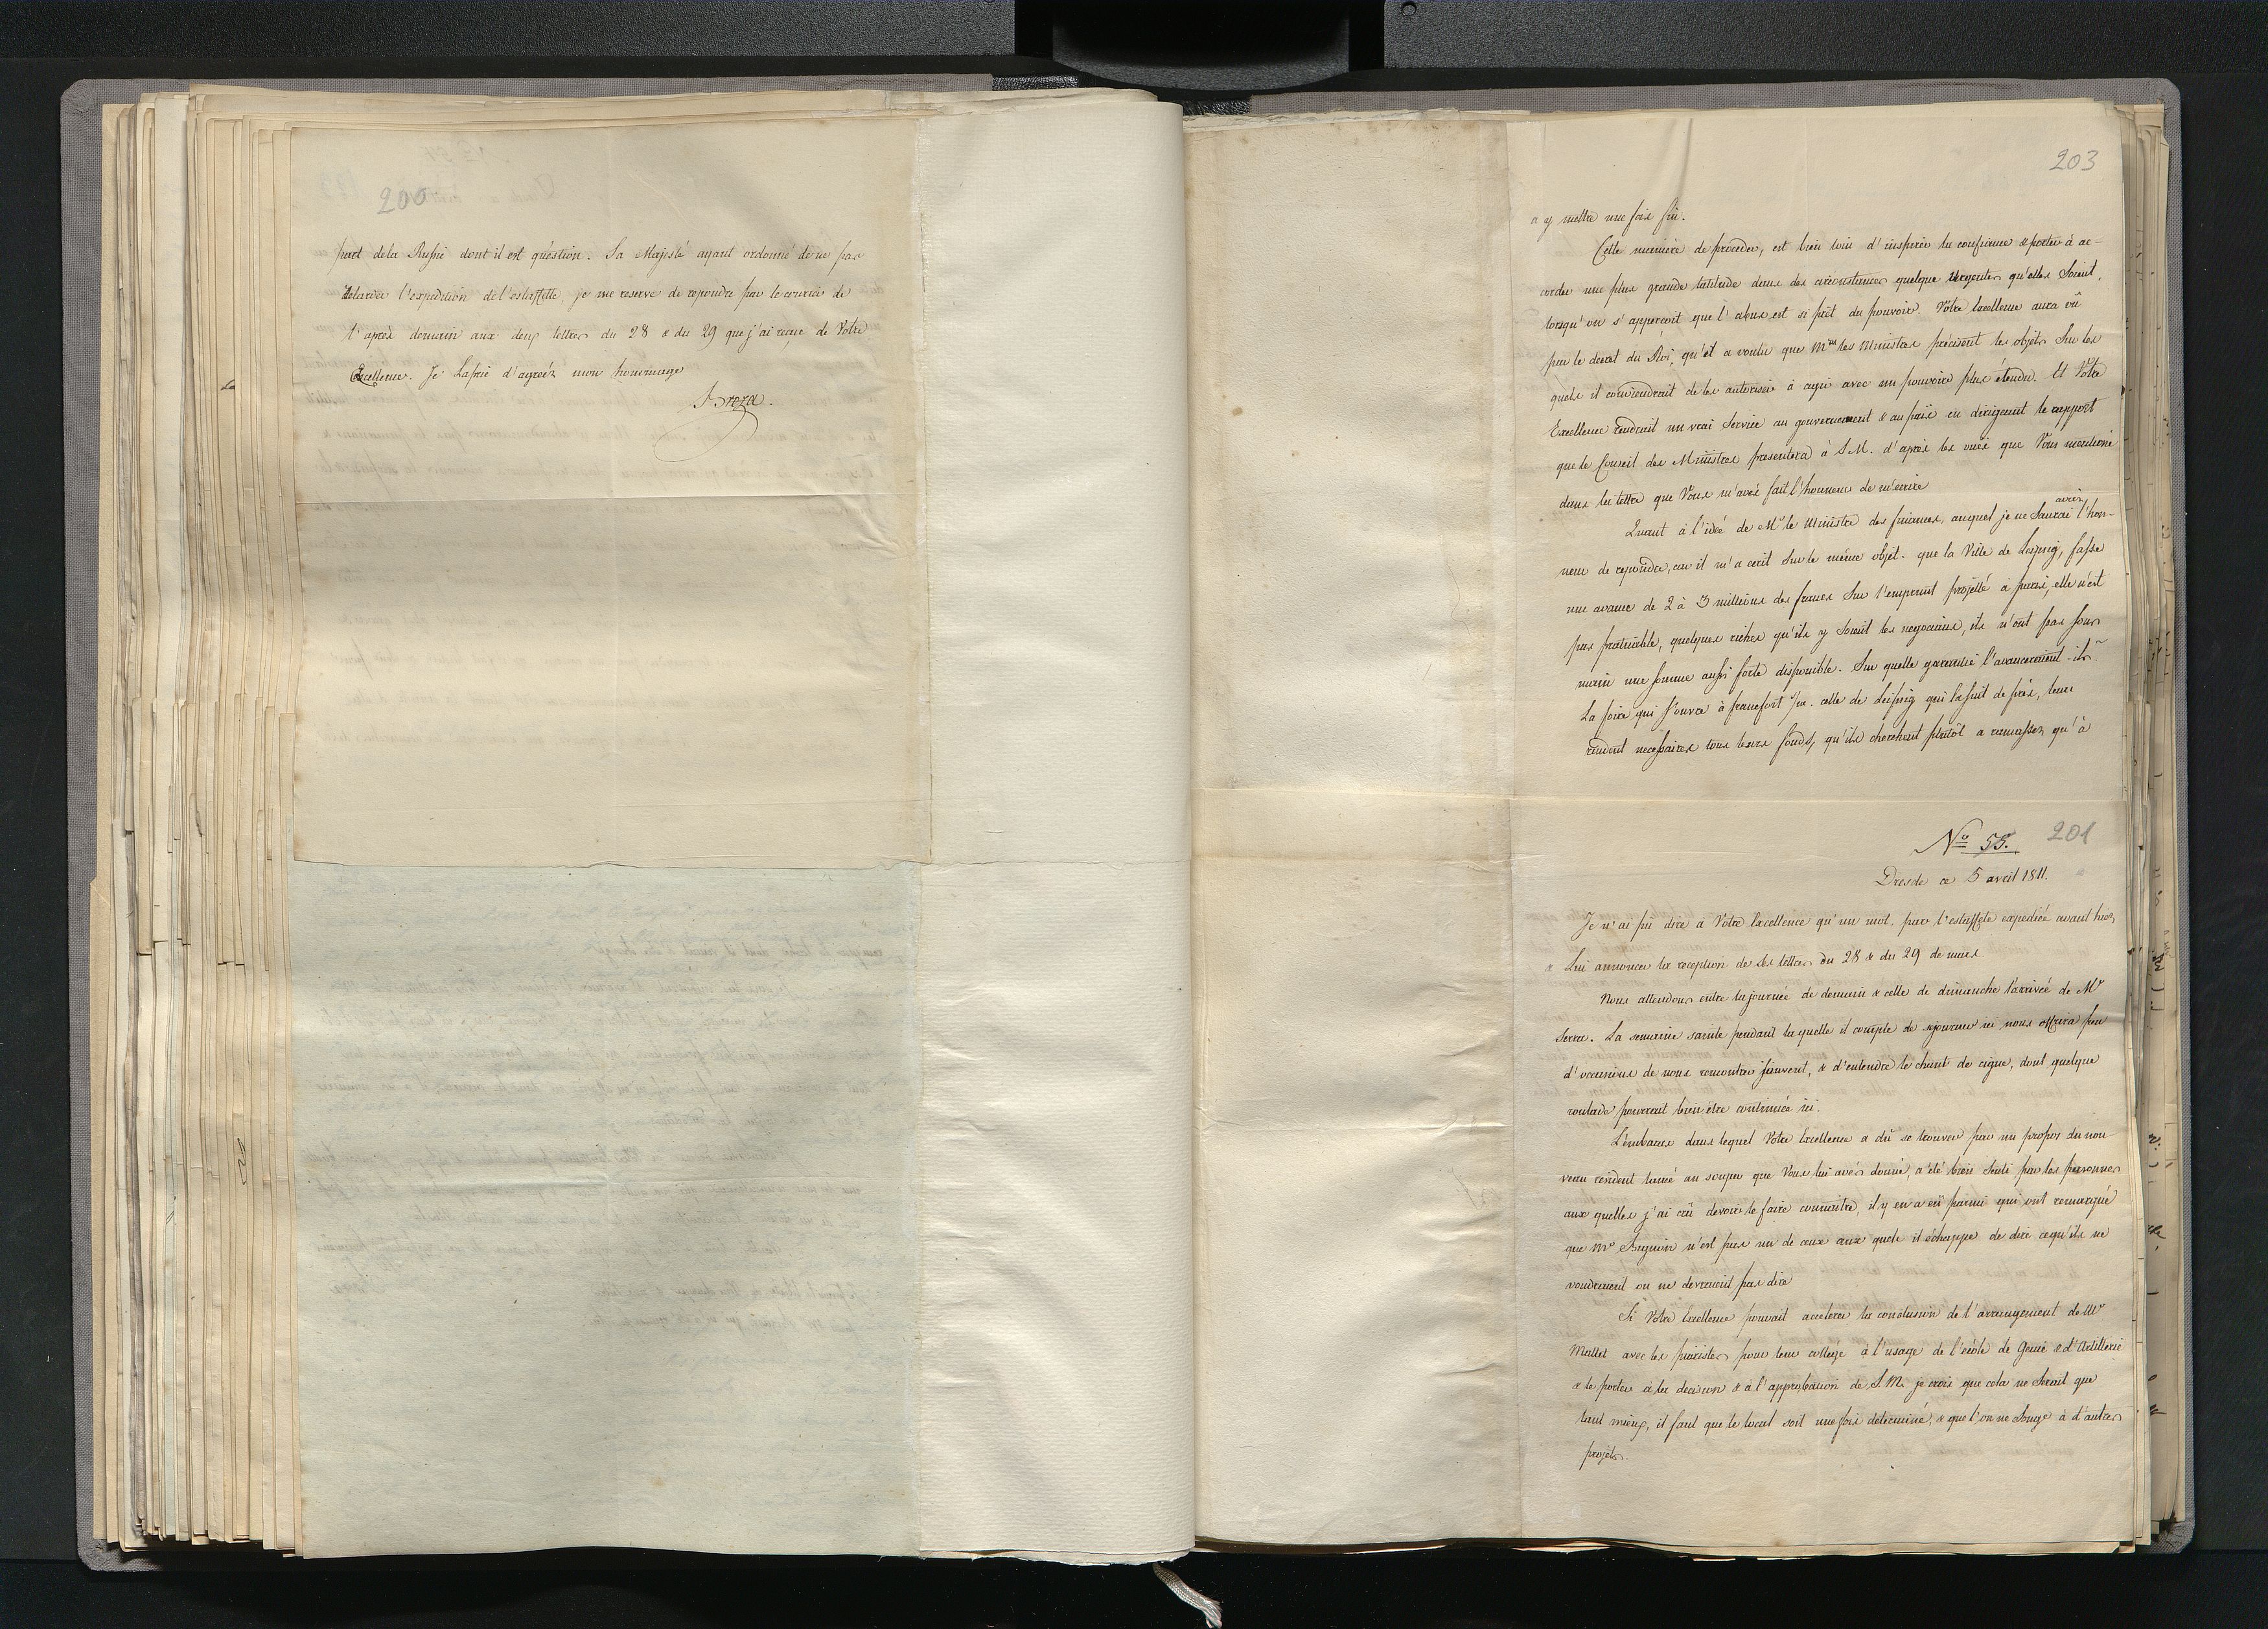 200
part dela Russie dont il est quéstion. Sa Majesté ayant ordonné de ne pas
retarder l'expedition del'estaffette, je me reserve de repondre par le courier de
l'après demain aux deux lettres du 28 & du 29 que j'ai reçue de Votre
Excellence. Je La prie d'agreér mon hommage
Breza.
203
a y mettre une fois fin.
Cette manière de proceder, est bien loin d'inspirer la confiance & porter à ac-
corder une plus grande latitude dans des circonstances quelque urgentes qu'elles Soient,
lorsqu'on s'apperçoit que l'abus est si près du pouvoir. Votre Excellence aura vû
par le decret du Roi, qu'il a voulu que Mrs les Ministres précisent les objets Sur les
quels il conviendrait de les autoriser à agir avec un pouvoir plus étendu. Et Votre
Excellence rendrait un vrai Service au gouvernement & au païs en dirigeant le rapport
que le Conseil des Ministres presentera à S.M. d'après les vues que Vous mentionné
dans la lettre que Vous m'avés fait l'honneur de m'ecrire
Quant à l'idée de Mr le Ministre des finances, auquel je ne Saurai avoir l'hon-
neur de repondre, car il m'a ecrit Sur le même objet. que la Ville de Leipzig, fasse
une avance de 2 à 3 millions des francs Sur l'emprunt projetté à paris, elle n'est
pas praticable, quelques riches qu'ils y Soient les negocians, ils n'ont pas sous
main une somme aussi forte disponible. Sur quelle garantie l'avanceraient-ils
La foire qui s'ouvre à francfort s/m. celle de Leipzig qui la suit de près, leur
rendent necessaires tous leurs fonds, qu'ils cherchent plutôt a ramasser, qu'à
No 55. 201
Dresde ce 5 avril 1811.
Je n'ai pû dire à Votre Excellence qu'un mot. par l'estaffete expediée avant hier,
& Lui annoncer la reception de Ses lettres du 28 & du 29 de mars.
Nous attendons entre la journée de demain & celle de dimanche l'arrivée de Mr
Serra. La semaine sainte pendant la quelle il compte de sejourner ici nous offrira peu
d'occasions de nous rencontrer souvent, & d'entendre le chant de cigne, dont quelque
roulade pourrait bien être continuée ici.
L'embaras dans lequel Votre Excellence a dû se trouver par un propos du nou-
veau resident lancé au souper que Vous lui avés donné, a été bien Senti par les personnes
aux quelles j'ai crû devoir le faire connaitre, il y en a eû parmi qui ont remarqué
que Mr Bignon n'est pas un de ceux aux quels il échappe de dire cequ'ils ne
voudraient ou ne devraient pas dire
Si Votre Excellence pouvait accelerer la conclusion de l'arrangement de Mr
Mallet avec les piaristes pour leur collège à l'usage de l'ecole de Genie & d'Artillerie
& le porter à la decision & à l'approbation de S.M. je crois que cela ne Serait que
tant mieux, il faut que le local soit une fois déterminé, & que l'on ne Songe à d'autres
projets.